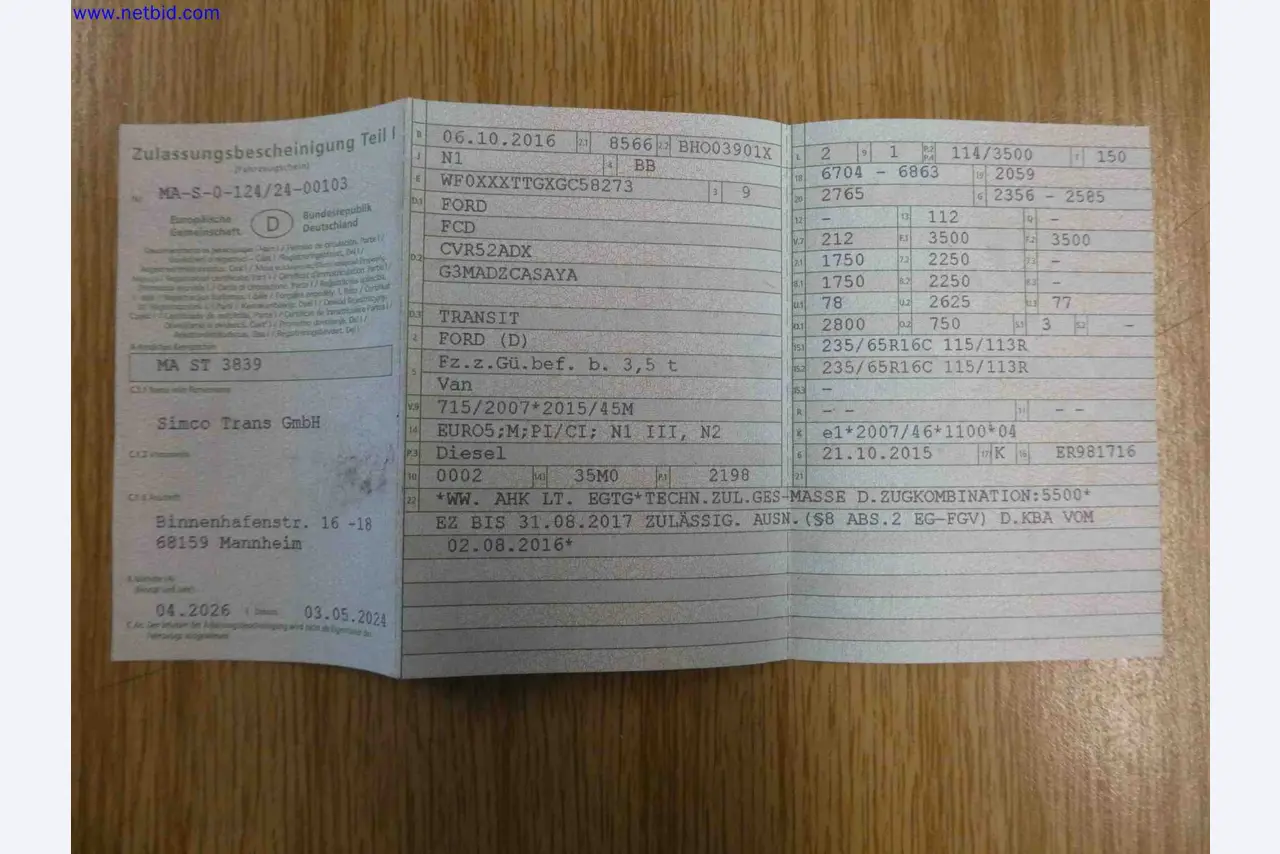 www.netbid.com
Zulassungsbescheinigung Teil I
(Fahrzeugschein)
Nr. MA-S-O-124/24-00103
Europäische Gemeinschaft
D
Bundesrepublik Deutschland
MA ST 3839
Simco Trans GmbH
Binnenhafenstr. 16 -18
68159 Mannheim
04.2026 03.05.2024
B 06.10.2016 2.1 8566 2.2 BHO03901X
J N1 4 BB
E WF0XXXTTGXGC58273 3 9
D.1 FORD
FCD
D.2 CVR52ADX
G3MADZCASAYA
D.3 TRANSIT
2 FORD (D)
5 Fz.z.Gü.bef. b. 3,5 t
Van
V.9 715/2007*2015/45M
14 EURO5;M;PI/CI; N1 III, N2
P.3 Diesel
10 0002 14.1 35M0 P.1 2198
L 2 9 1 P.2 P.4 114/3500 T 150
18 6704 - 6863 19 2059
20 2765 G 2356 - 2585
12 - 13 112 Q -
V.7 212 F.1 3500 F.2 3500
7.1 1750 7.2 2250 7.3 -
8.1 1750 8.2 2250 8.3 -
U.1 78 U.2 2625 U.3 77
O.1 2800 O.2 750 S.1 3 S.2 -
15.1 235/65R16C 115/113R
15.2 235/65R16C 115/113R
15.3 -
R - - 11 - -
K e1*2007/46*1100*04
6 21.10.2015 17 K 16 ER981716
21
22 *WW. AHK LT. EGTG*TECHN.ZUL.GES-MASSE D.ZUGKOMBINATION:5500*
EZ BIS 31.08.2017 ZULÄSSIG. AUSN.(§8 ABS.2 EG-FGV) D.KBA VOM
02.08.2016*